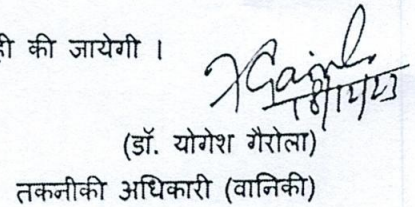 ही की जायेगी ।
(डॉ. योगेश गैरोला)
तकनीकी अधिकारी (वानिकी)